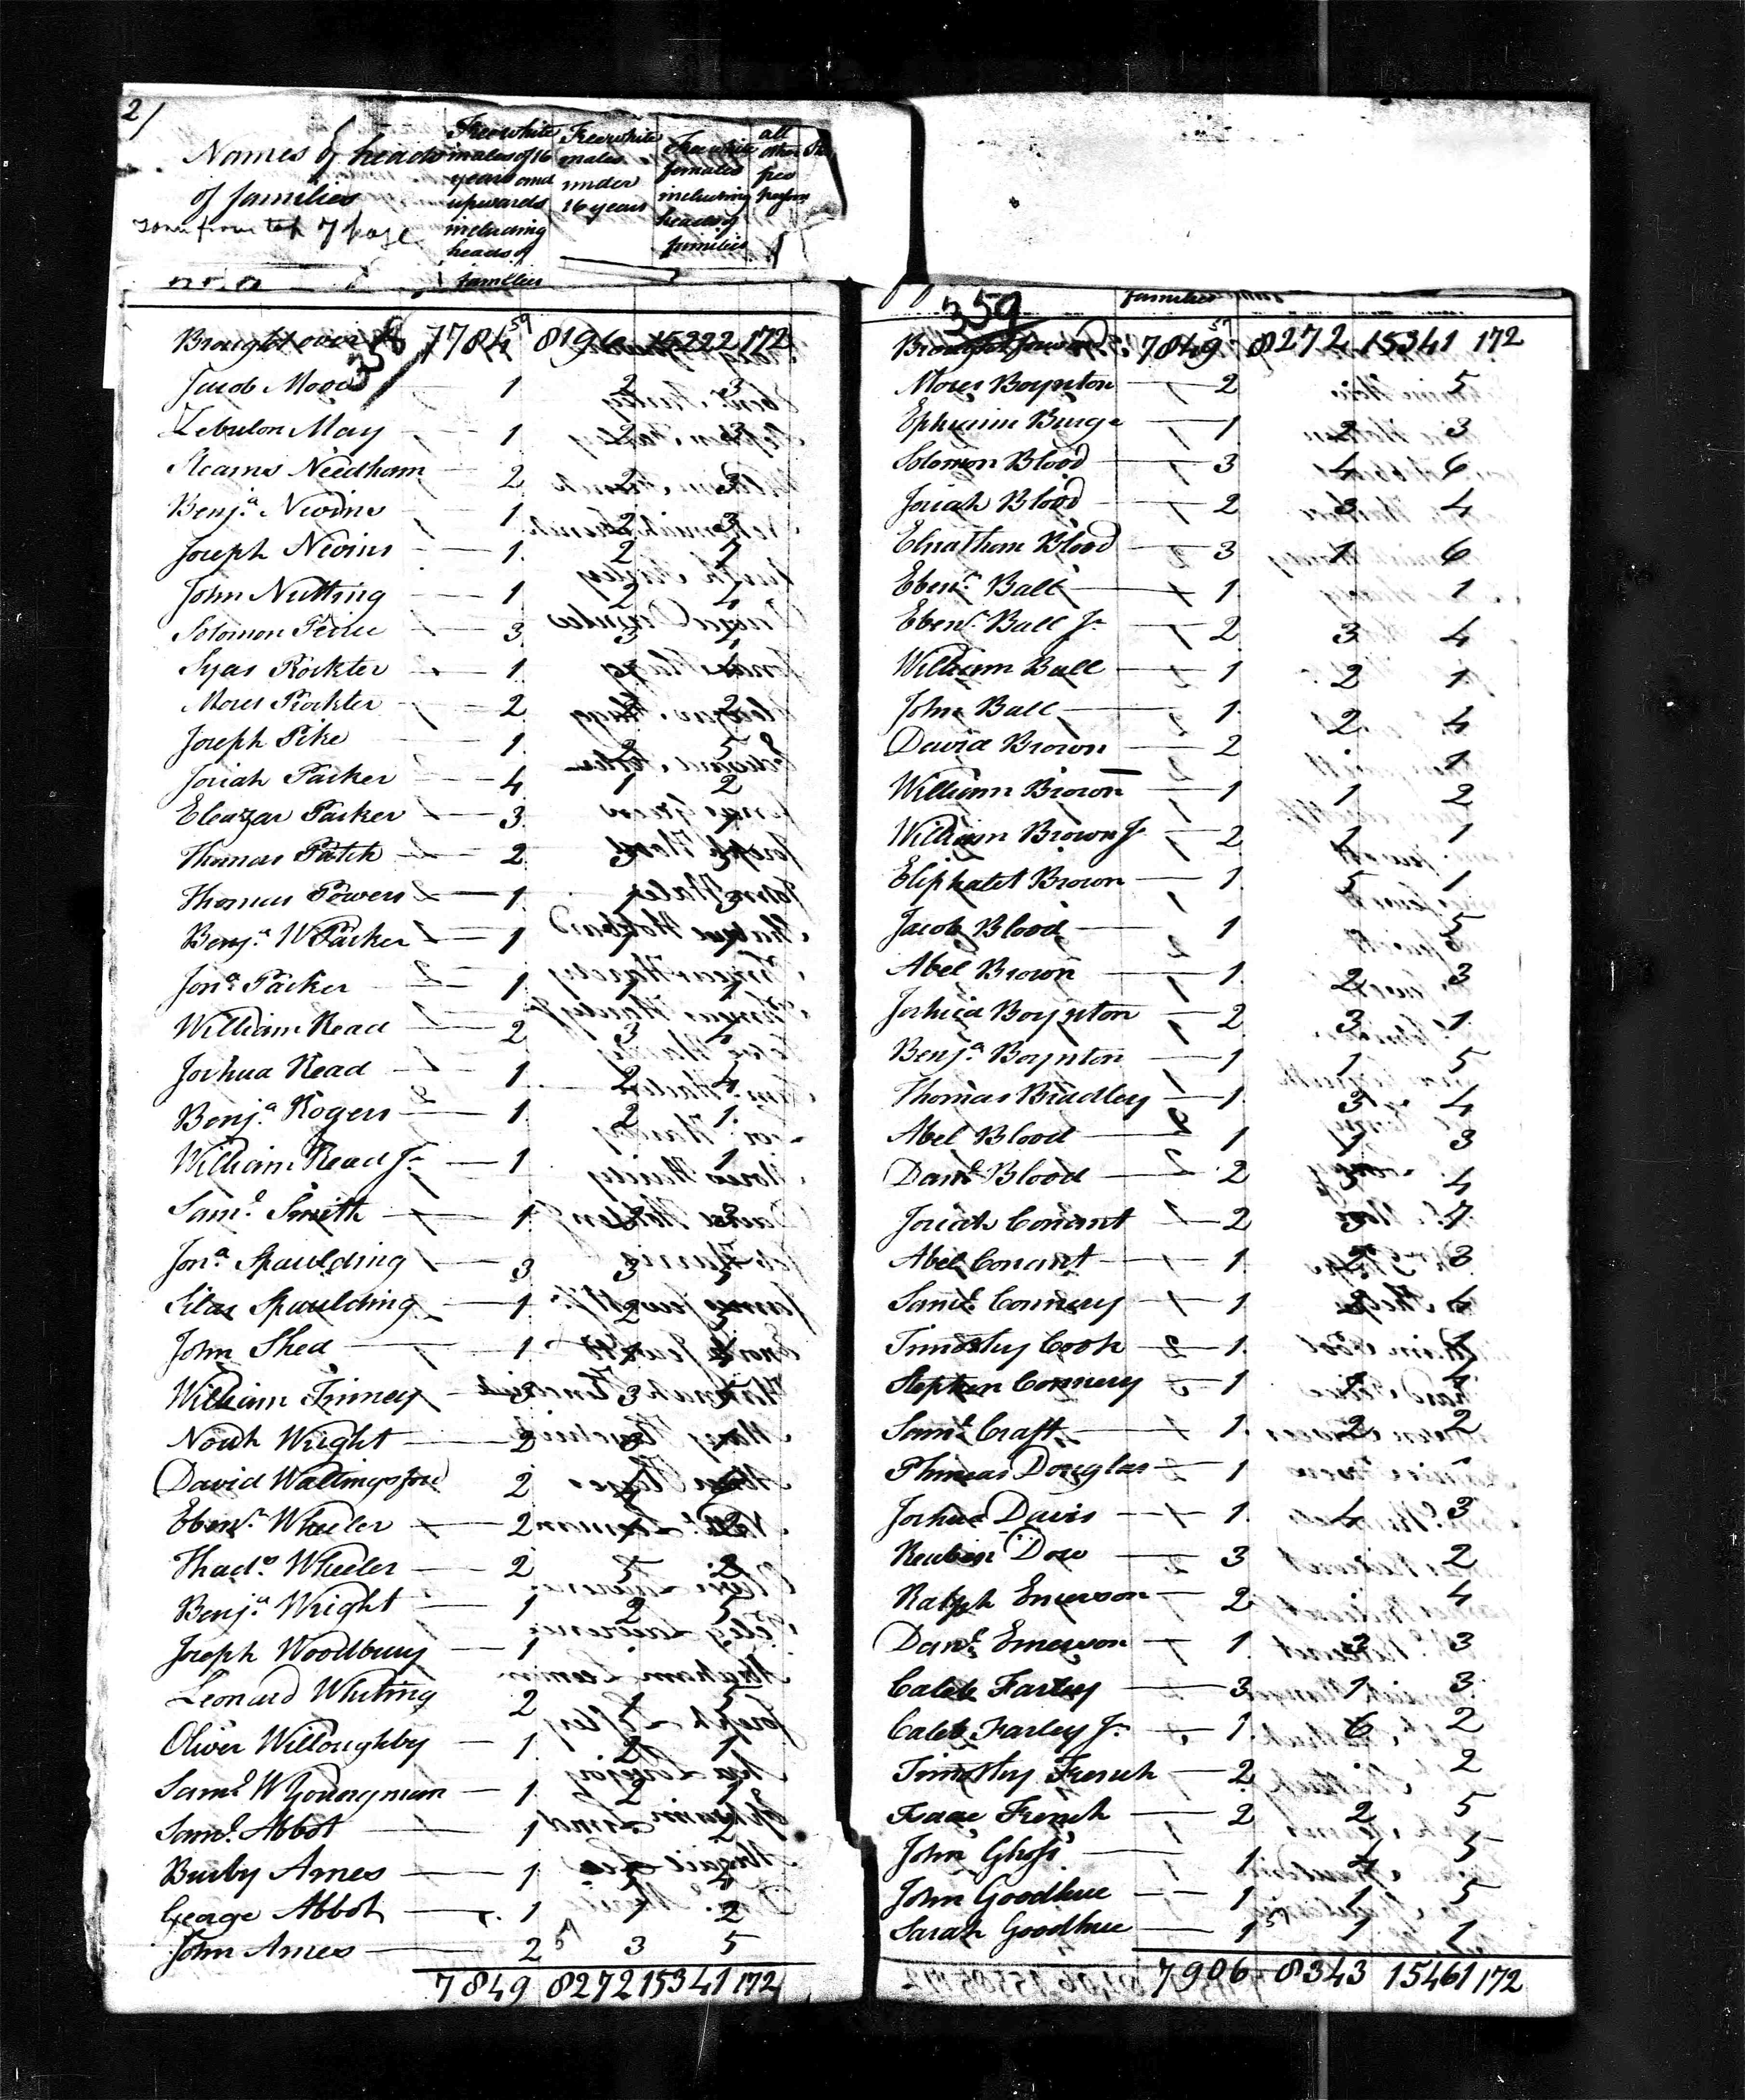 2/
Names of heads
of families
Free white
males of 16
years and
upwards
including
heads of
families
Free white
males
under
16 years
Free white
females
including
heads of
families
all
other
free
persons
Torn from top of page
358
Brought over 7784 8196 15222 172
Jacob Moor 1 2 3
Zebulon May 1
Stearns Needham 2
Benj.a Nevins 1 2 3
Joseph Nevins 1 2 7
John Nutting 1 2 4
Solomon Peirce 3
Syas Rockter 1
Moses Rockter 2
Joseph Pike 1
Josiah Parker 4 1 2
Eleazar Parker 3
Thomas Patch 2
Thomas Powers 1
Benj.a W Parker 1
Jon.a Parker 1
William Read 2 3
Joshua Read 1 2
Benj.a Rogers 1 2 1
William Read Jr 1 1
Sam.l Smith 1
Jon.a Spaulding 3 3
Silas Spaulding 1
John Shed 1
William Tinney 3
Noah Wright 2
David Wallingsford 2
Eben.r Wheeler 2
Thad.s Wheeler 2 5 2
Benj.a Wright 1 2
Joseph Woodbury 1
Leonard Whiting 2 1 5
Oliver Willoughby 1 2 1
Sam.l W Youngman 1 2
Sam.l Abbot 1
Burby Ames 1
George Abbot 1 1 2
John Ames 2 3 5
7849 8272 15341 172
families
359
Brought forward 7849 8272 15341 172
Moses Boynton 2 5
Ephraim Burge 1 2 3
Solomon Blood 3 4 6
Josiah Blood 2 3 4
Elnathan Blood 3 1 6
Eben.r Ball 1 1
Eben.r Ball Jr 2 3 4
William Ball 1 2 1
John Ball 1 2 4
David Brown 2 1
William Brown 1 1 2
William Brown Jr 2 1 1
Eliphalet Brown 1 5 1
Jacob Blood 1 5
Abel Brown 1 2 3
Joshua Boynton 2 3 1
Benj.a Boynton 1 1 5
Thomas Bradley 1 3 4
Abel Blood 1 1 3
Dan.l Blood 2 4
Josiah Conant 2 3 7
Abel Conant 1 2 3
Sam.l Connery 1 4
Timothy Cook 1 1
Stephen Connery 1
Sam.l Craft 1 2 2
Phineas Douglas 1
Joshua Davis 1 4 3
Reuben Dow 3 2
Ralph Emerson 2 4
Dan.l Emerson 1 3 3
Caleb Farley 3 1 3
Caleb Farley Jr 1 6 2
Timothy French 2 2
Isaac French 2 2 5
John Ghoss 1 4 5
John Goodhue 1 1 5
Sarah Goodhue 1 1 1
7906 8343 15461 172